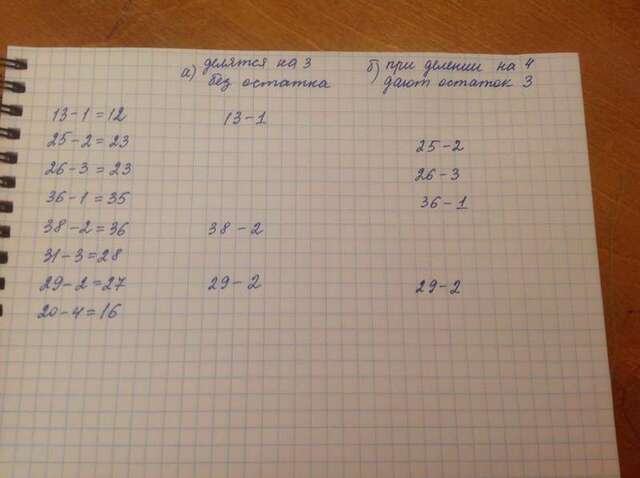 а) делятся на 3 без остатка
б) при делении на 4 дают остаток 3
13-1=12 13-1
25-2=23 25-2
26-3=23 26-3
36-1=35 36-1
38-2=36 38-2
31-3=28
29-2=27 29-2 29-2
20-4=16